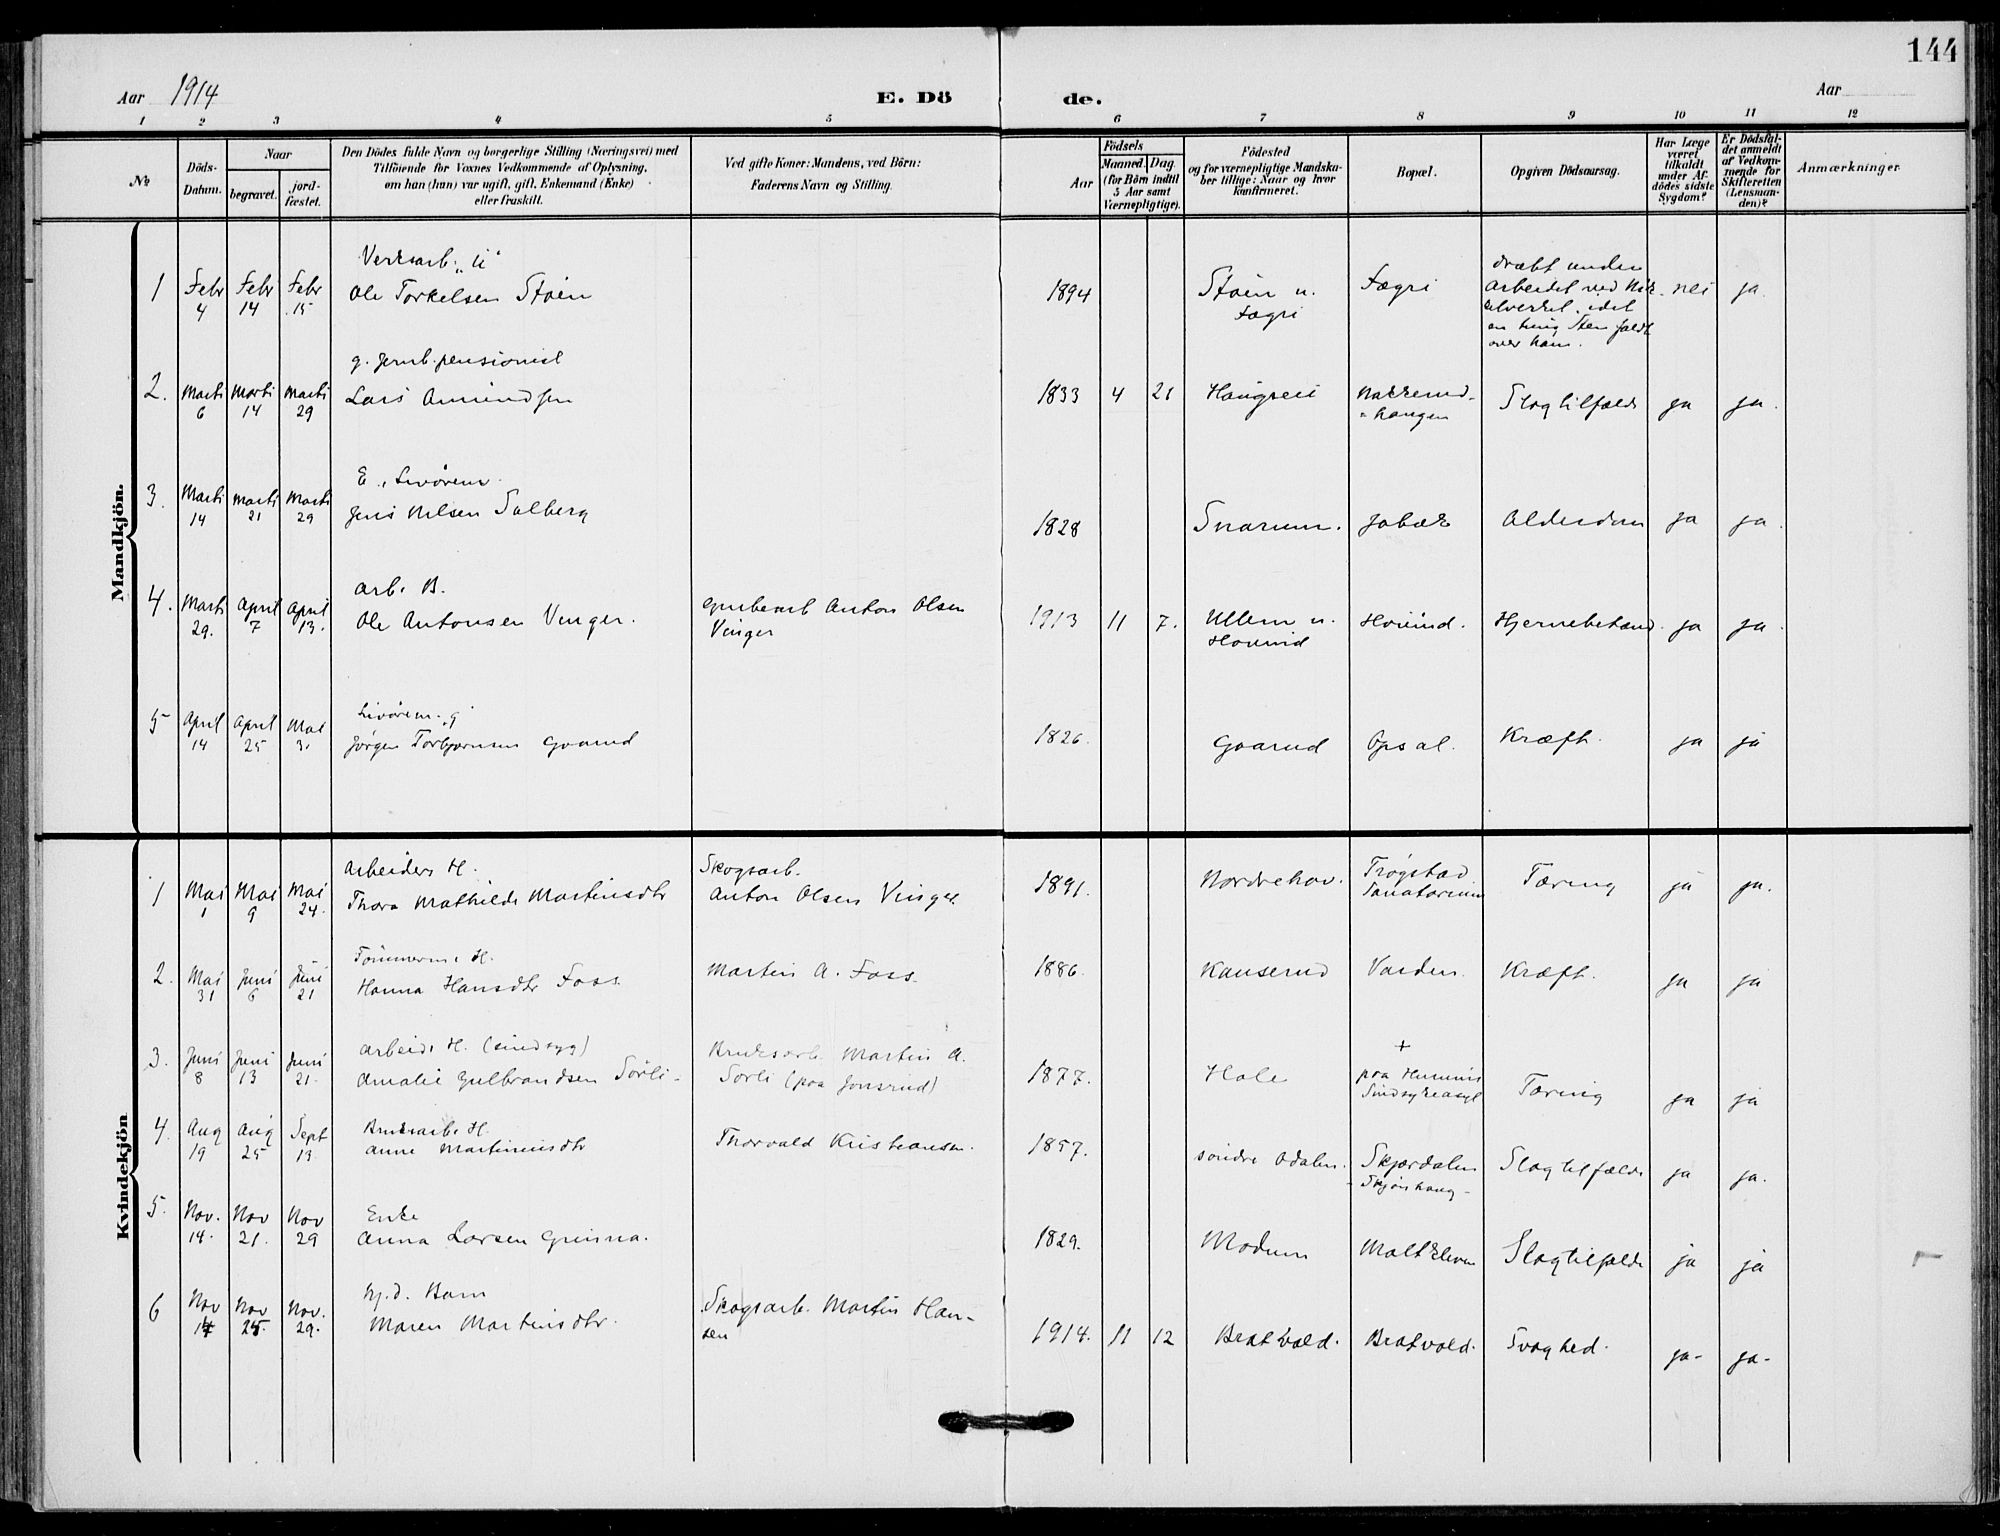 144
Aar 1914
E. Dö
de.
Aar
1 2 3 4 5 6 7 8 9 10 11 12
No
Döds-
Datum.
Naar
begravet.
jord-
fæstet.
Den Dödes fulde Navn og borgerlige Stilling (Næringsvei) med
Tilföiende for Voxnes Vedkommende af Oplysning,
om han (hun) var ugift, gift, Enkemand (Enke)
eller fraskilt.
Ved gifte Koner: Mandens, ved Börn:
Faderens Navn og Stilling.
Födsels
Aar
Maaned.
Dag
(for Börn indtil
5 Aar samt
Værnepligtige).
Födested
og for værnepligtige Mandska-
ber tillige: Naar og hvor
konfirmeret.
Bopæl.
Opgiven Dödsaarsag.
Har Læge
været
tilkaldt
under Af-
dödes sidste
Sygdom?
Er Dödsfal-
det anmeldt
af Vedkom-
mende for
Skifteretten
(Lensman-
den)?
Anmærkninger.
Mandkjön.
1 Febr 4 Febr 14 Febr 15
Verksarb. "U"
Ole Torkelsen Støen
1894
Støen u.
Fægri
Fægri
dræbt under
Arbeidet ved Nik-
kelverket, idet
en Sten faldt
over ham.
nei ja.
2. Marti 6 Marti 14 Marti 29
g. jernb. pensionist
Lars Amundsen
1833 4 21
Nakkerud-
haugen
Slagtilfælde ja ja.
3. Marti 14 Marti 21 Marti 29
E. Livørem.
Jens Nilsen Solberg
1828
Snarum.
Alderdom ja ja.
4. Marti 29. April 7 April 13.
Arb. B.
Ole Antonsen Vinger.
Anton Olsen
Vinger
1913 11 7.
Ullern u.
Hovind
Hovind.
Hjernebetænd. ja ja.
5 April 14 April 25 Mai 3.
Livørem. g
Jørgen Torbjørnsen Gaarud
1826.
Gaarud
Opsal.
Kræft. ja ja
Kvindekjön
1 Mai 1 Mai 9 Mai 24.
Arbeiders H.
Thora Mathilde Martinsdtr
Skogsarb.
Anton Olsen Vinger.
1891.
Norderhov.
Trøgstad
Sanatorium
Tæring ja ja.
2. Mai 31 Juni 6 Juni 21
Tømmerm. H.
Hanna Hansdtr Foss.
Martin A. Foss.
1886.
Kanserud
Varden.
Kræft. ja ja
3. Juni 8 Juni 13 Juni 21.
Arbeid. H. (sindsyg)
Amalie Gulbrandsen Sörli.
Bruksarb. Martin A.
Sorli (paa Jonsrud)
1877.
Hole
+
paa
Sindsykeasyl
Tæring ja ja
4. Aug 19 Aug 25 Sept 13.
Bruksarb. H.
Anne Martinusdtr
Thorvald Kristiansen.
1857.
søndre Odalen.
Skjærdalen
Skjønhaug-
Slagtilfælde ja ja.
5. Nov. 14. Nov 21. Nov 29
Enke
Anna Larsen Grinna.
1829.
Modum
Slagtilfælde ja ja
6 Nov 14 Nov 25. Nov. 29.
hj.d. Barn
Maren Martinsdtr.
Skogsarb. Martin Han-
sen
1914. 11 12
Bratvold.
Bratvold.
Svaghed.
ja- ja-